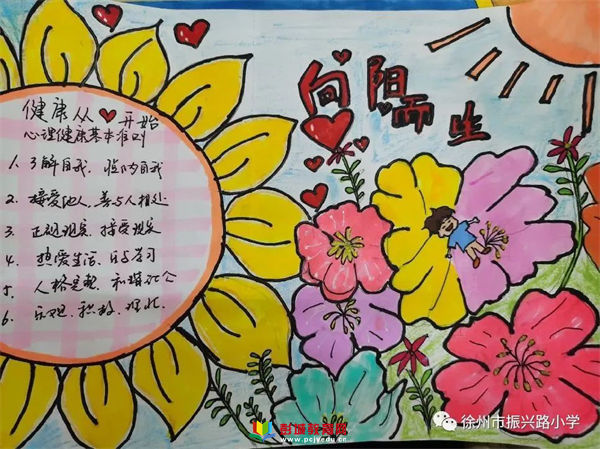 健康从 开始
心理健康基本准则
1. 了解自我、悦纳自我
2. 接受他人、善与人相处
3. 正视现实、接受现实
4. 热爱生活、乐与学习
5. 人格完整、和谐
6. 乐观、积极、
向阳而生
徐州市振兴路小学
彭城教育网
www.pcjyedu.cn